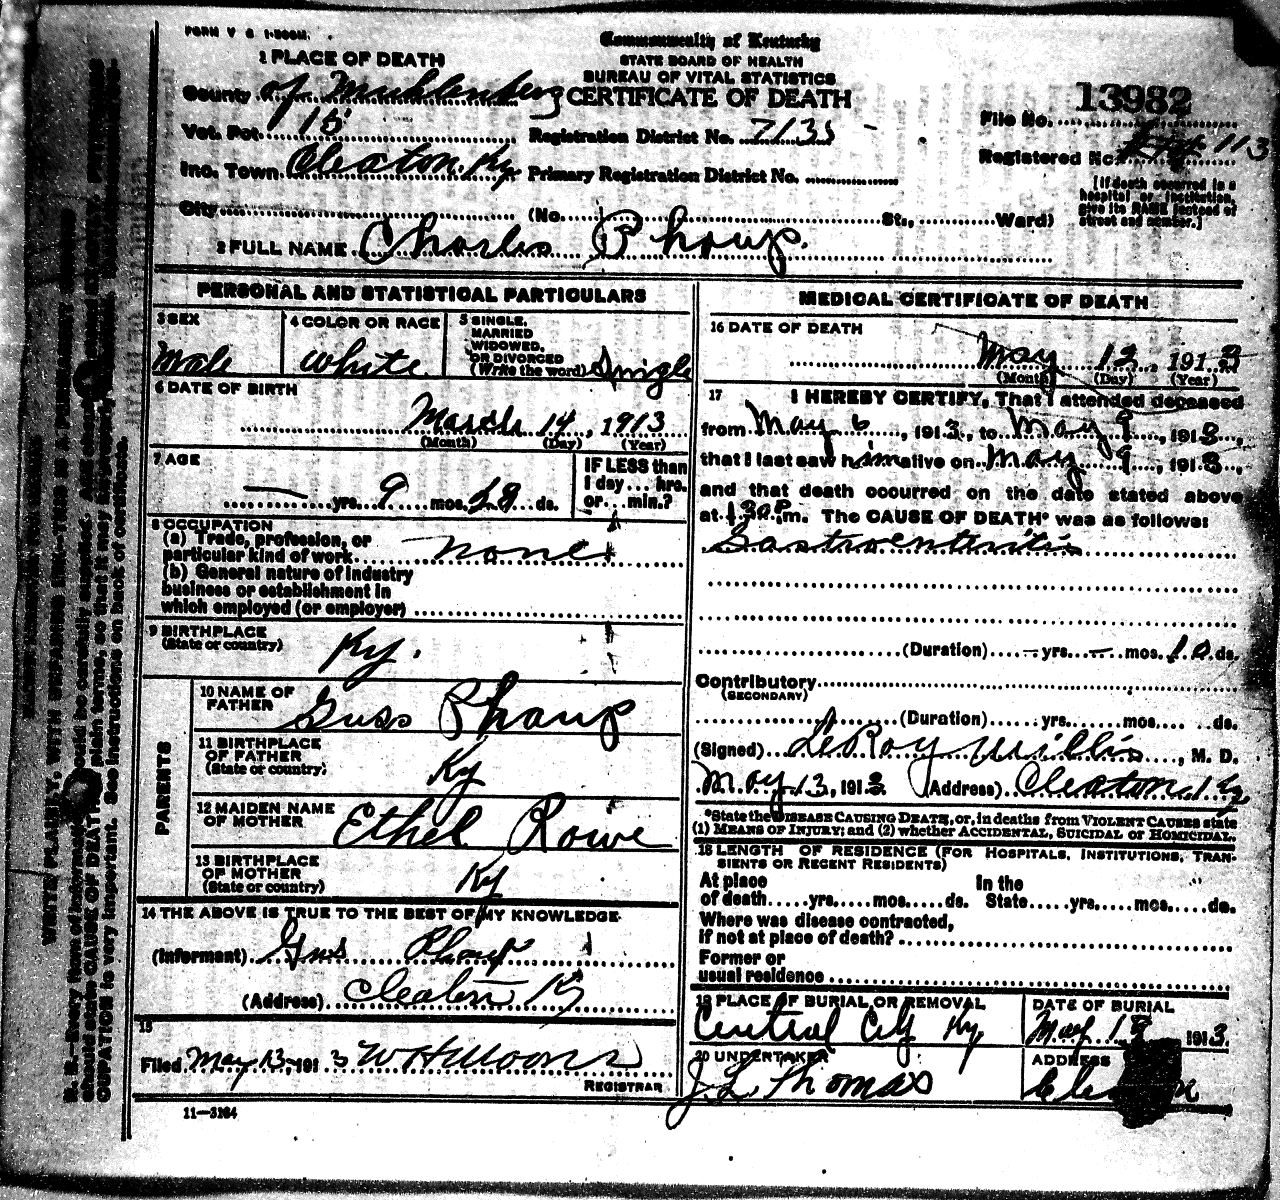 FORM V S 1-500M.
Commonwealty of Kentucky
STATE BOARD OF HEALTH
BUREAU OF VITAL STATISTICS
CERTIFICATE OF DEATH
1 PLACE OF DEATH
County of Muhlenberg
Vot. Pct. 15
Inc. Town Cleaton. Ky
City
Registration District No. 7135
Primary Registration District No.
(No. St., Ward)
File No. 13982
Registered No. 113
[If death occurred in a
hospital or institution,
give its NAME instead of
street and number.]
2 FULL NAME Charles Phaup.
PERSONAL AND STATISTICAL PARTICULARS
3 SEX
Male
4 COLOR OR RACE
White
5 SINGLE,
MARRIED
WIDOWED,
OR DIVORCED
(Write the word) Single
6 DATE OF BIRTH
March 14, 1913
(Month) (Day) (Year)
7 AGE
— yrs. 9 mos. 28 ds.
IF LESS than
1 day... hrs.
or... min.?
8 OCCUPATION
(a) Trade, profession, or
particular kind of work none
(b) General nature of industry
business or establishment in
which employed (or employer)
9 BIRTHPLACE
(State or country)
Ky.
PARENTS
10 NAME OF
FATHER
Guss Phaup
11 BIRTHPLACE
OF FATHER
(State or country)
Ky
12 MAIDEN NAME
OF MOTHER
Ethel Rowe
13 BIRTHPLACE
OF MOTHER
(State or country)
Ky
14 THE ABOVE IS TRUE TO THE BEST OF MY KNOWLEDGE
(Informant) Gus Phaup
(Address) Cleaton Ky
15
Filed May 13, 1913 W H Moons
REGISTRAR
11—3184
MEDICAL CERTIFICATE OF DEATH
16 DATE OF DEATH
May 12, 1913
(Month) (Day) (Year)
17 I HEREBY CERTIFY, That I attended deceased
from May 6, 1913, to May 9, 1913,
that I last saw him alive on May 9, 1913,
and that death occurred on the date stated above
at 130 P m. The CAUSE OF DEATH* was as follows:
Gastroentritis
(Duration) — yrs. — mos. 10 ds.
Contributory
(SECONDARY)
(Duration) yrs. mos. ds.
(Signed) LeRoy Willis, M. D.
May 13, 1913 (Address) Cleaton Ky
*State the DISEASE CAUSING DEATH, or, in deaths from VIOLENT CAUSES state
(1) MEANS OF INJURY; and (2) whether ACCIDENTAL, SUICIDAL or HOMICIDAL.
18 LENGTH OF RESIDENCE (FOR HOSPITALS, INSTITUTIONS, TRAN-
SIENTS OR RECENT RESIDENTS)
At place In the
of death yrs. mos. ds. State yrs. mos. ds.
Where was disease contracted,
If not at place of death?
Former or
usual residence
19 PLACE OF BURIAL OR REMOVAL
Central City Ky
DATE OF BURIAL
May 13 1913.
20 UNDERTAKER
J. L. Thomas
ADDRESS
WRITE PLAINLY, WITH UNFADING INK—THIS IS A PERMANENT
N. B.—Every item of
should state CAUSE OF DEATH plain terms, so that it may
CUPATION is very important. See instructions on back of certificate.